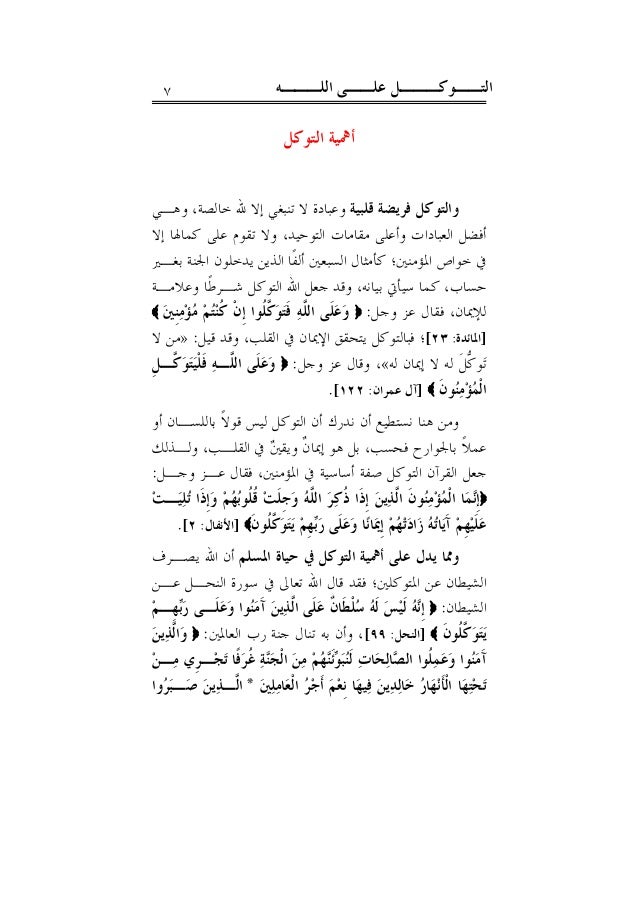 التـــوكـــــل علـــى اللـــــه ٧
أهمية التوكل
والتوكل فريضة قلبية وعبادة لا تنبغي إلا لله خالصة، وهـــي
أفضل العبادات وأعلى مقامات التوحيد، ولا تقوم على كمالها إلا
في خواص المؤمنين؛ كأمثال السبعين ألفًا الذين يدخلون الجنة بغـــير
حساب، كما سيأتي بيانه، وقد جعل الله التوكل شـــرطًا وعلامـــة
للإيمان، فقال عز وجل: ﴿ وَعَلَى اللَّهِ فَتَوَكَّلُوا إِنْ كُنْتُمْ مُؤْمِنِينَ ﴾
[المائدة: ٢٣]؛ فبالتوكل يتحقق الإيمان في القلب، وقد قيل: «من لا
تَوكُّلَ له لا إيمان له»، وقال عز وجل: ﴿ وَعَلَى اللَّـــهِ فَلْيَتَوَكَّـــلِ
الْمُؤْمِنُونَ ﴾ [آل عمران: ١٢٢].
ومن هنا نستطيع أن ندرك أن التوكل ليس قولاً باللســـان أو
عملاً بالجوارح فحسب، بل هو إيمانٌ ويقينٌ في القلـــب، ولـــذلك
جعل القرآن التوكل صفة أساسية في المؤمنين، فقال عـــز وجـــل:
﴿إِنَّمَا الْمُؤْمِنُونَ الَّذِينَ إِذَا ذُكِرَ اللَّهُ وَجِلَتْ قُلُوبُهُمْ وَإِذَا تُلِيَـــتْ
عَلَيْهِمْ آَيَاتُهُ زَادَتْهُمْ إِيمَانًا وَعَلَى رَبِّهِمْ يَتَوَكَّلُونَ﴾ [الأنفال: ٢].
ومما يدل على أهمية التوكل في حياة المسلم أن الله يصـــرف
الشيطان عن المتوكلين؛ فقد قال الله تعالى في سورة النحـــل عـــن
الشيطان: ﴿ إِنَّهُ لَيْسَ لَهُ سُلْطَانٌ عَلَى الَّذِينَ آَمَنُوا وَعَلَـــى رَبِّهِـــمْ
يَتَوَكَّلُونَ ﴾ [النحل: ٩٩]، وأن به تنال جنة رب العالمين: ﴿ وَالَّذِينَ
آَمَنُوا وَعَمِلُوا الصَّالِحَاتِ لَنُبَوِّئَنَّهُمْ مِنَ الْجَنَّةِ غُرَفًا تَجْـــرِي مِـــنْ
تَحْتِهَا الْأَنْهَارُ خَالِدِينَ فِيهَا نِعْمَ أَجْرُ الْعَامِلِينَ * الَّـــذِينَ صَـــبَرُوا